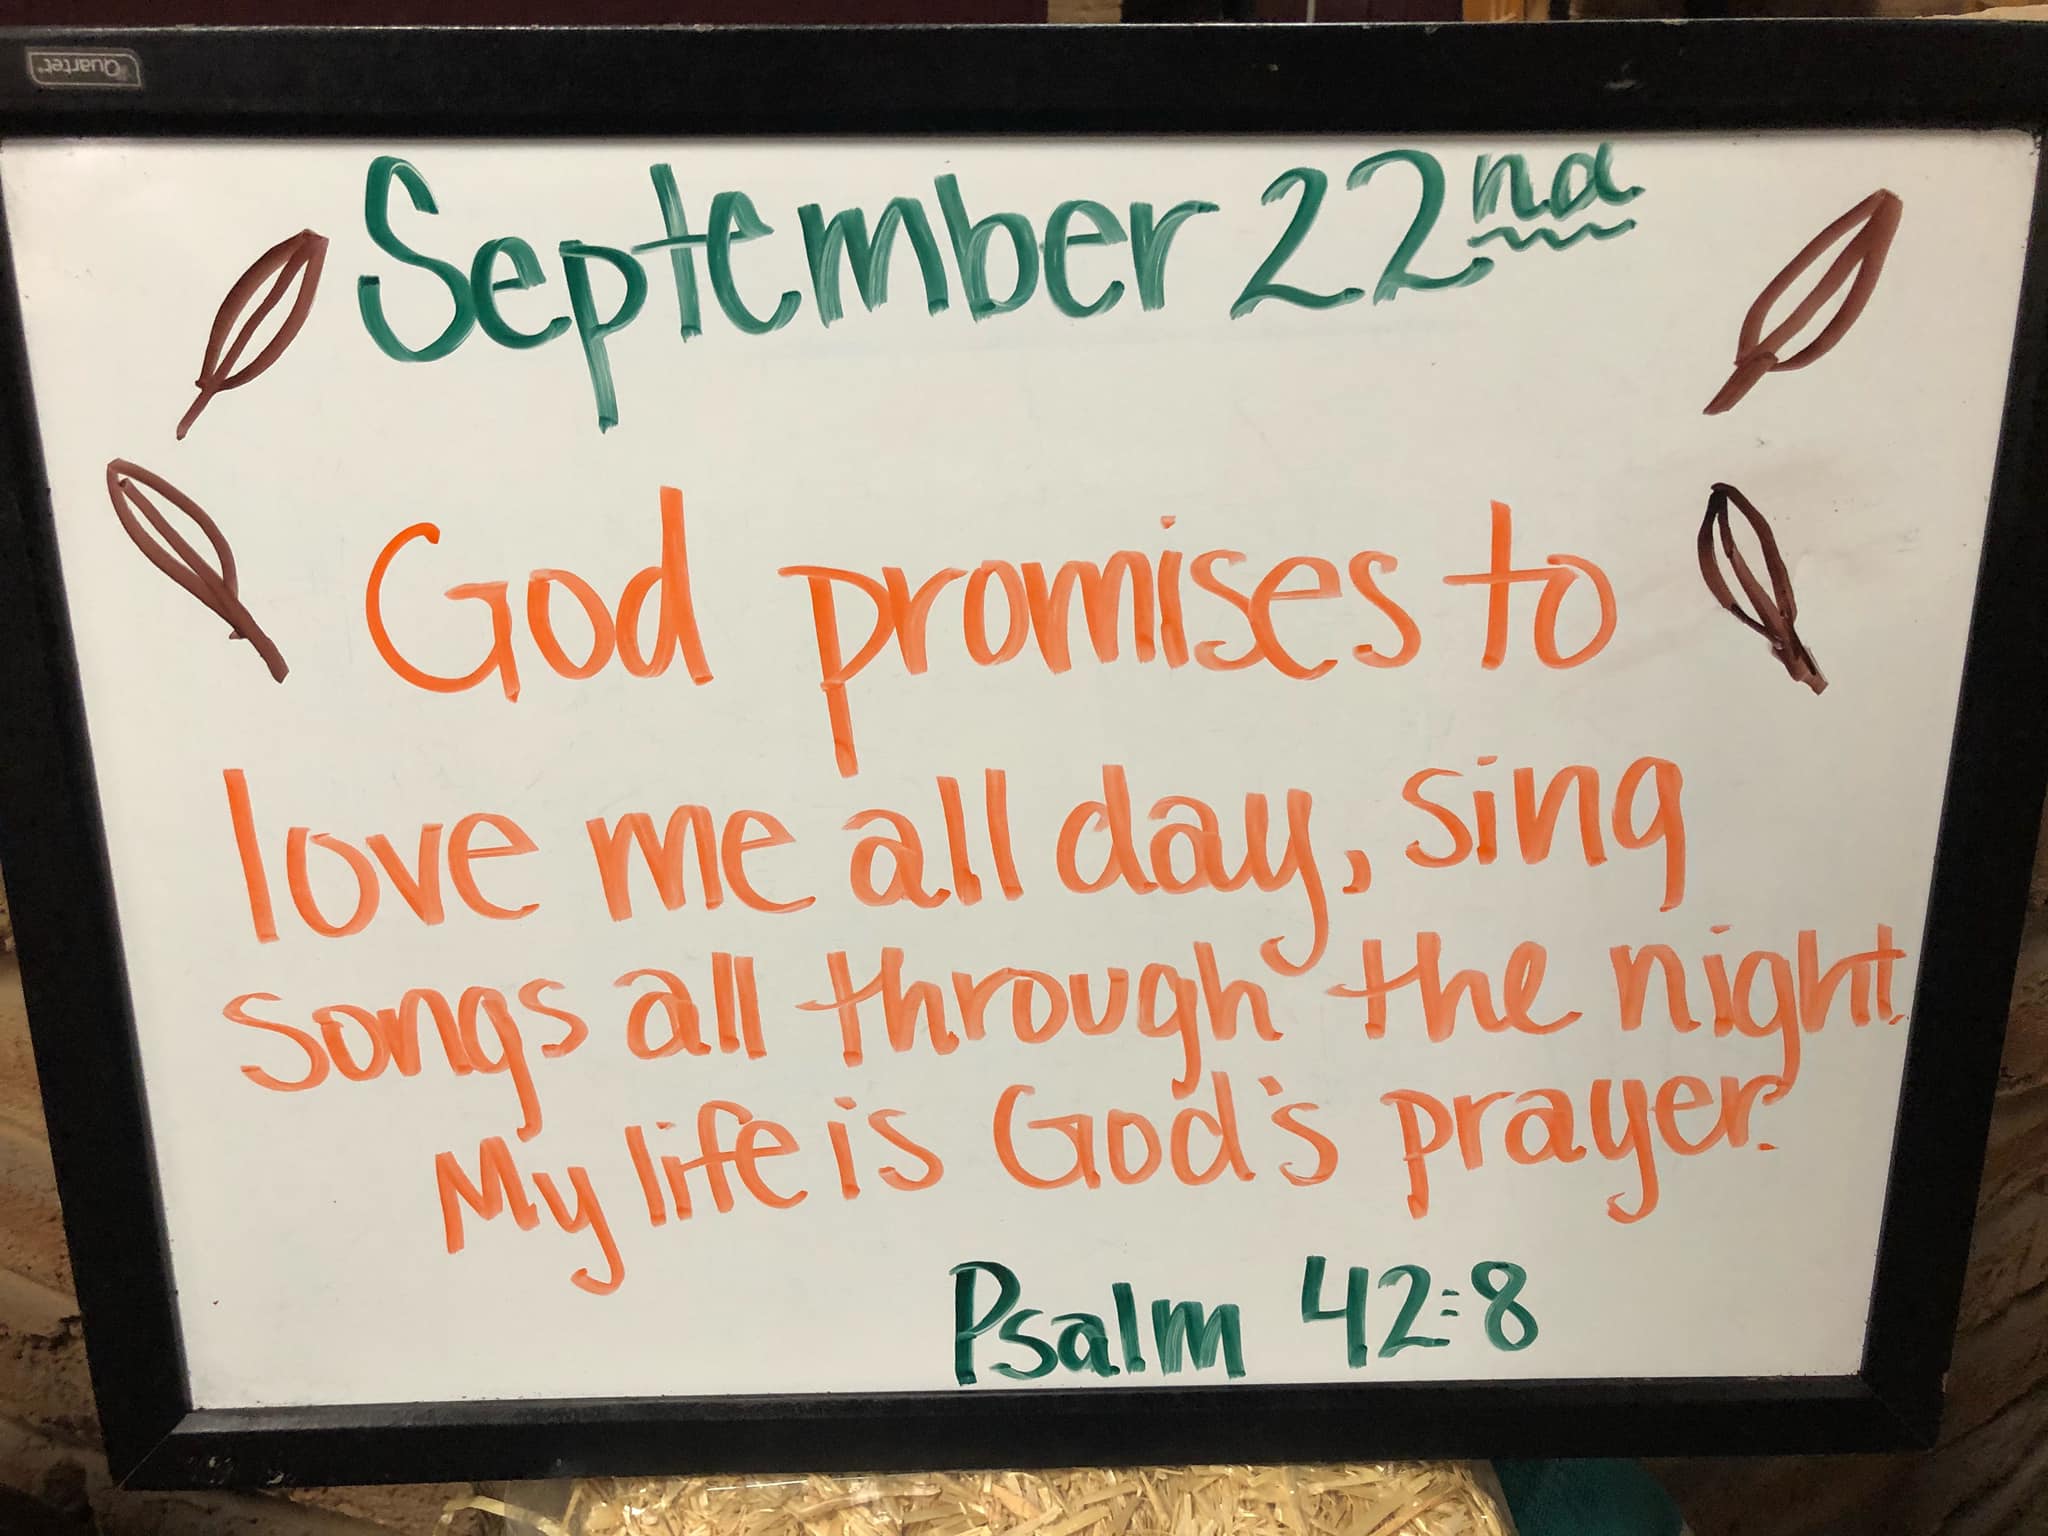 Quartet
September 22nd
God promises to
love me all day, sing
songs all through the night.
My life is God's prayer.
Psalm 42:8